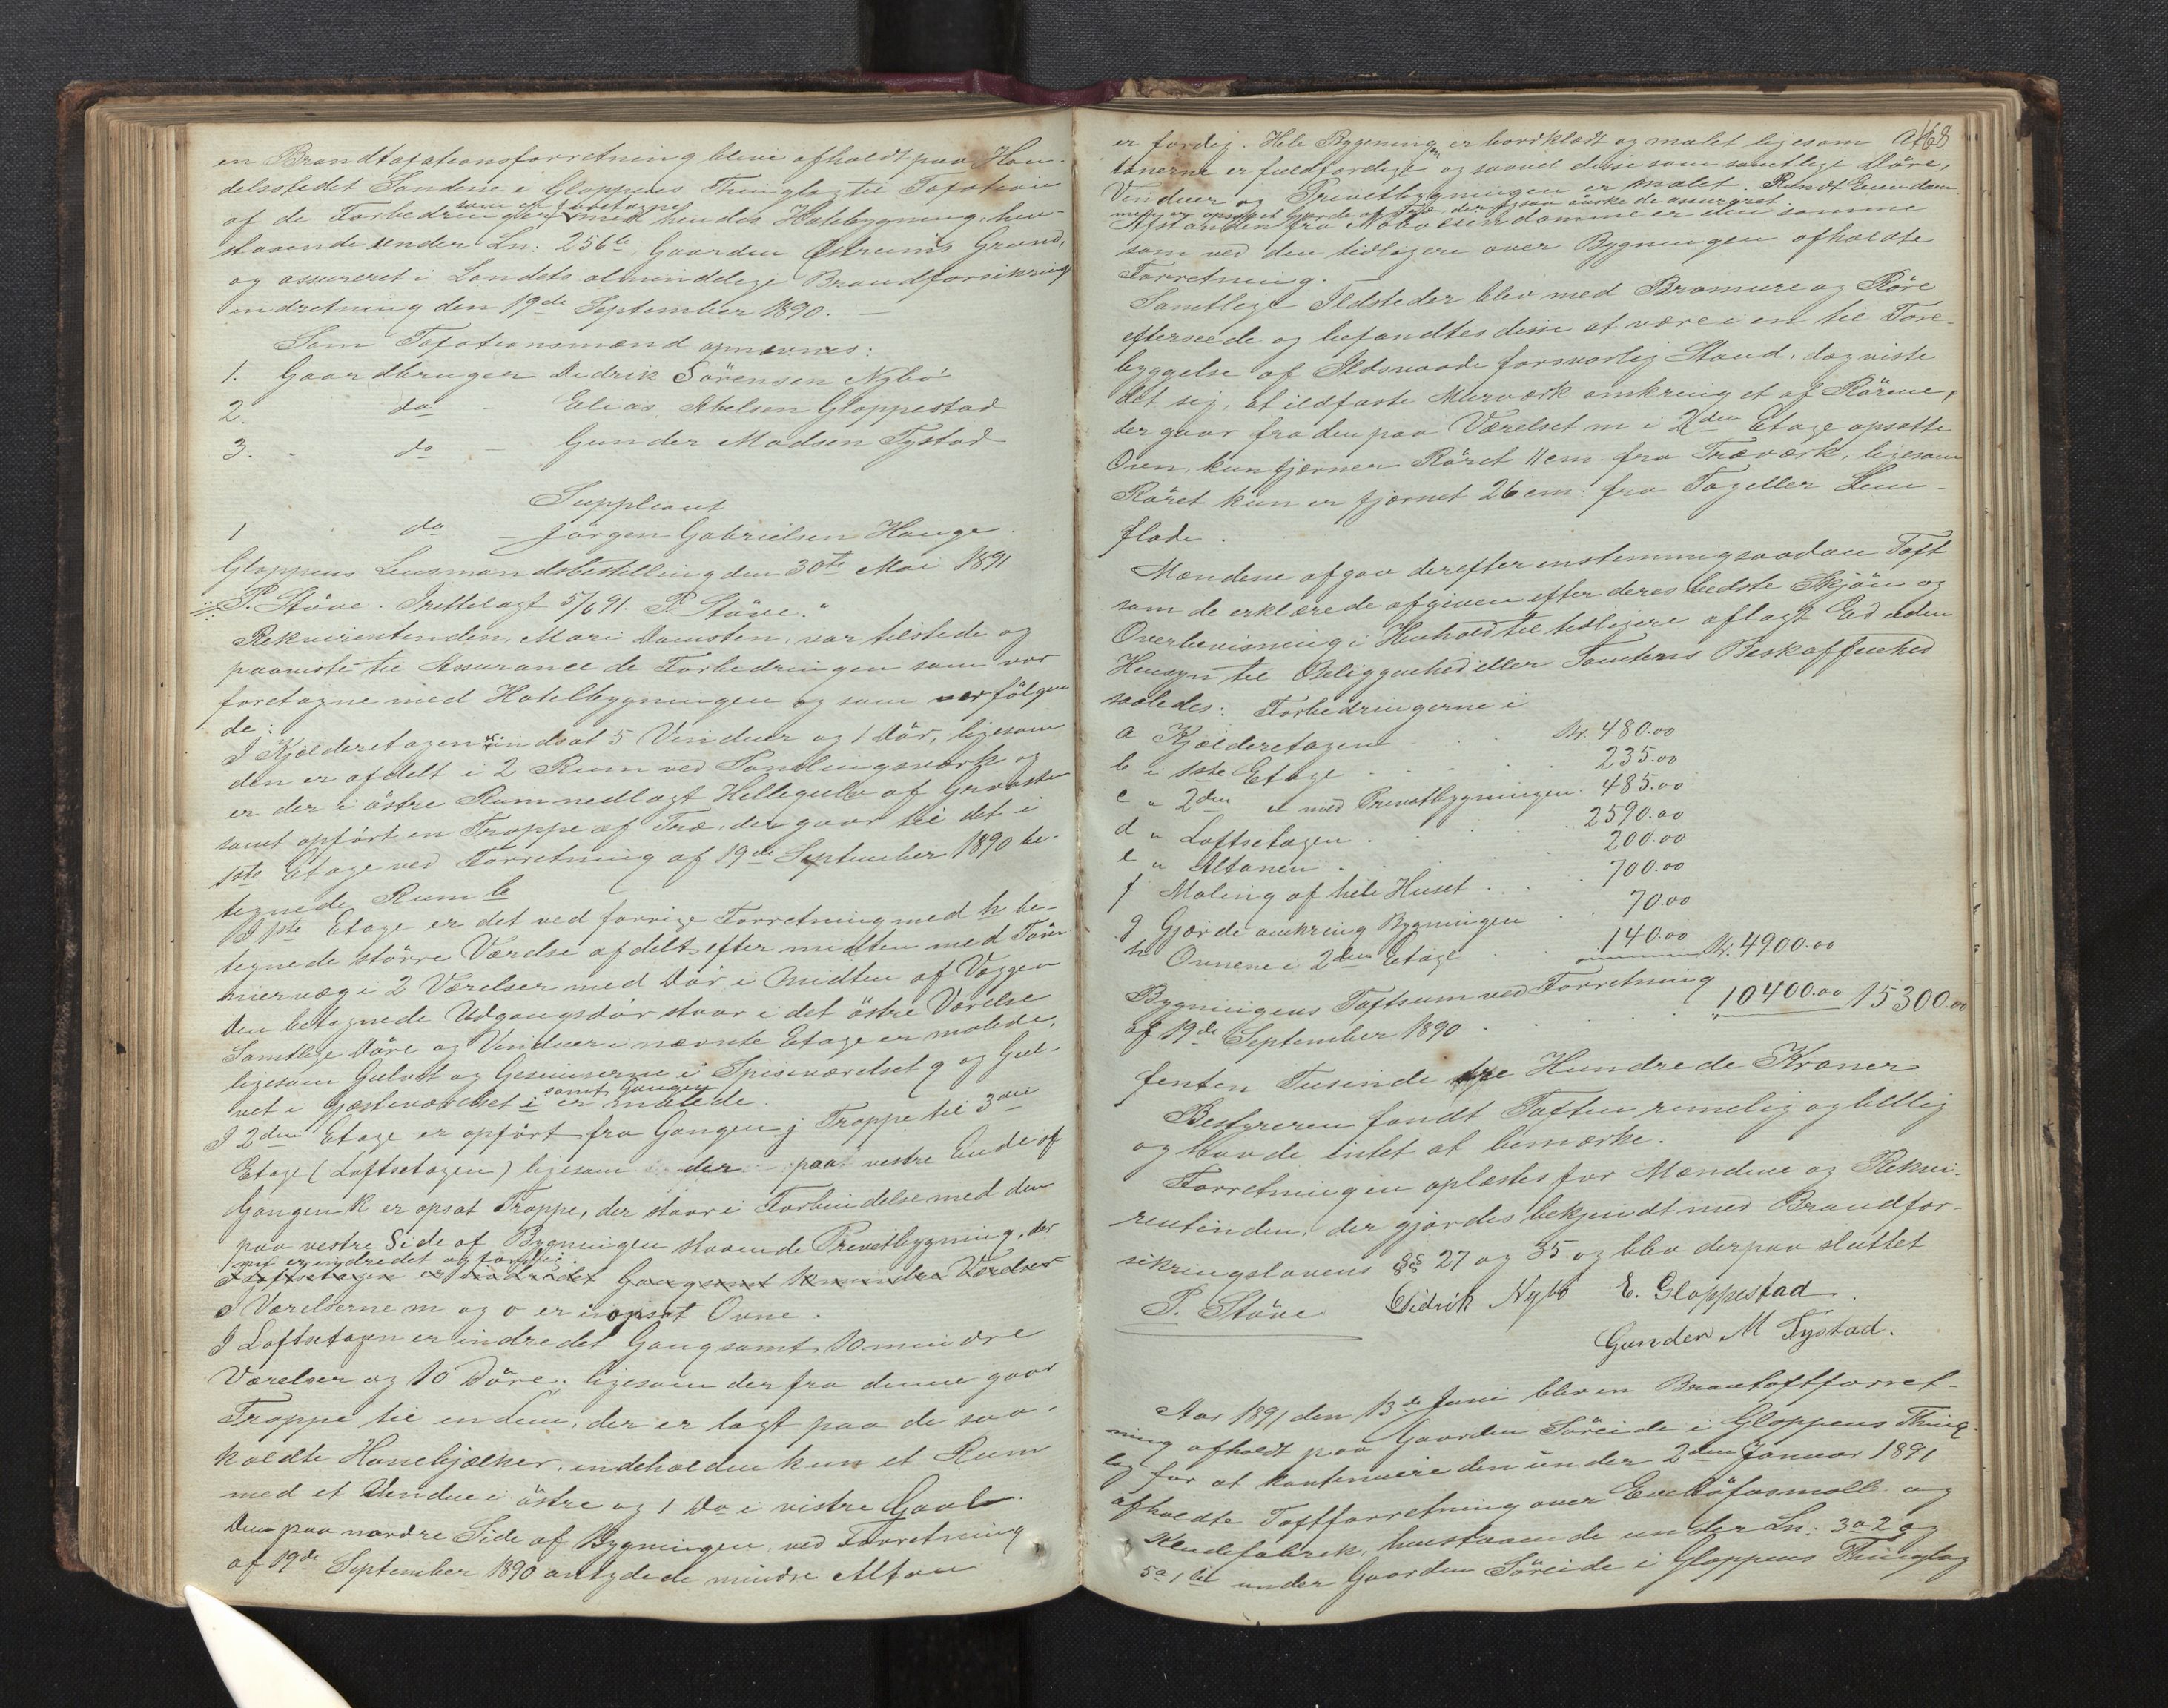 en Brandtaxationsforretning blive afholdt paa Han-
delsstedet Sandene i Gloppens Thinglag til Taxation
af de Forbedringer som er foretagne med hendes Hotelbygning, hen-
staaende under Ln: 256 b, Gaarden Østreims Grund,
og assureret i Landets almindelige Brandforsikrings
indretning den 19de September 1890. —
Som Taxationsmænd opnævnes:
1. Gaardbruger Didrik Sörensen Nybö
2. do - Elias Abelsen Gloppestad
3. do - Gunder Madsen Tystad
Suppleant
1 do - Jörgen Gabrielsen Hauge.
Gloppens Lensmandsbestilling den 30te Mai 1891
P. Stöve. Irettelagt 5/6 91. P. Stöve."
Rekvirentinden, Mari Damsten, var tilstede og
paaviste til Assurance de Forbedringer som var
foretagne med Hotelbygningen og som er følgen
de:
I Kjælderetagen er indsat 5 Vinduer og 1 Dör, ligesom
den er afdelt i 2 Rum ved Samlingsværk og
er der i östre Rum nedlagt Hellegulv af Graasten
samt opfört en Trappe af Træ, der gaar til det i
1ste Etage ved Forretning af 19de September 1890 be-
tegnede Rum b
I 1ste Etage er det ved forrige Forretning med h be-
tegnede större Værelse afdelt efter midten med Töm
mervæg i 2 Værelser med Dör i Midten af Væggen
Den betegnede Udgangsdör staar i det östre Værelse
Samtlige Döre og Vinduer i nævnte Etage er malede,
ligesom Gulvet og Gesimserne i Spiseværelset g og Gul-
vet i Gjæsteværelset i samt Gangen er malede.
I 2den Etage er opfört fra Gangen j Trappe til 3die
Etage (Loftsetagen) ligesom der paa vestre Ende af
Gangen k er opsat Trappe, der staar i Forbindelse med den
paa vestre Side af Bygningen staaende Privetbygning, der
nu er indredet og færdig.
I Loftsetagen er indredet Gang samt 10 mindre Værelser
I Værelserne m og o er opsat Ovne.
I Loftsetagen er indredet Gang samt 10 mindre
Værelser og 10 Döre, ligesom der fra denne gaar
Trappe til en Lem, der er lagt paa de saa-
kaldte Hanebjælker, indeholden kun et Rum
med et Vindue i östre og 1 Do i vestre Gavl.
Den paa nordre Side af Bygningen, ved Forretning
af 19de September 1890 antydede mindre Altan
168
er færdig. Hele Bygningen er bordklædt og malet ligesom Al
tanerne er fuldfærdige og saavel disse som samtlige Döre,
Vinduer og Privetbygningen er malet. Rundt Eiendom
men er opsat Gjærde af Træ, der ogsaa önskede assureret.
Afstanden fra Naboeiendomme er den samme
som ved den tidligere over Bygningen afholdte
Forretning.
Samtlige Ildsteder blev med Bramure og Röre
efterseede og befandtes disse at være i en til Fore-
byggelse af Ildsvaade forsvarlig Stand, dog viste
det sig, at ildfaste Murværk omkring et af Rörene,
der gaar fra den paa Værelset m i 2den Etage opsatte
Ovn, kun fjerner Röret 11 cm. fra Træværk, ligesom
Röret kun er fjernet 26 cm: fra Tag eller Lem-
flade.
Mændene afgav derefter enstemmig saadan Taxt
som de erklærede afgiven efter deres bedste Skjön og
Overbevisning i Henhold til tidligere aflagt Ed uden
Hensyn til Beliggenhed eller Tomtens Beskaffenhed
saaledes: Forbedringerne i
a Kjælderetagen . . . Kr. 480.00
b i 1ste Etage . . . . 235.00
c " 2den " med Privetbygningen. 485.00
d " Loftsetagen . . . . 2590.00
e " Altanen . . . . 200.00
f Maling af hele Huset . . . 700.00
g Gjærde omkring Bygningen . . 70.00
h Ovnene i 2den Etage . . 140.00 Kr. 4900.00
Bygningens Taxtsum ved Forretning
af 19de September 1890 . . . . 10400.00 15300.00
femten Tusinde tre Hundrede Kroner
Bestyreren fandt Taxten rimelig og billig
og havde intet at bemærke.
Forretningen oplæstes for Mændene og Rekvi-
rentinden, der gjordes bekjendt med Brandfor-
sikringslovens §§ 27 og 35 og blev derpaa sluttet
P. Stöve Didrik Nybö E. Gloppestad.
Gunder M Tystad.
Aar 1891 den 13de Juni blev en Brantaxtforret-
ning afholdt paa Gaarden Söreide i Gloppens Thing-
lag for at kontinuere den under 2den Januar 1891
afholdte Taxtforretning over og
Klædefabrik, henstaaende under Ln: 3 a 2 og
5 a 1 under Gaarden Söreide i Gloppens Thinglag